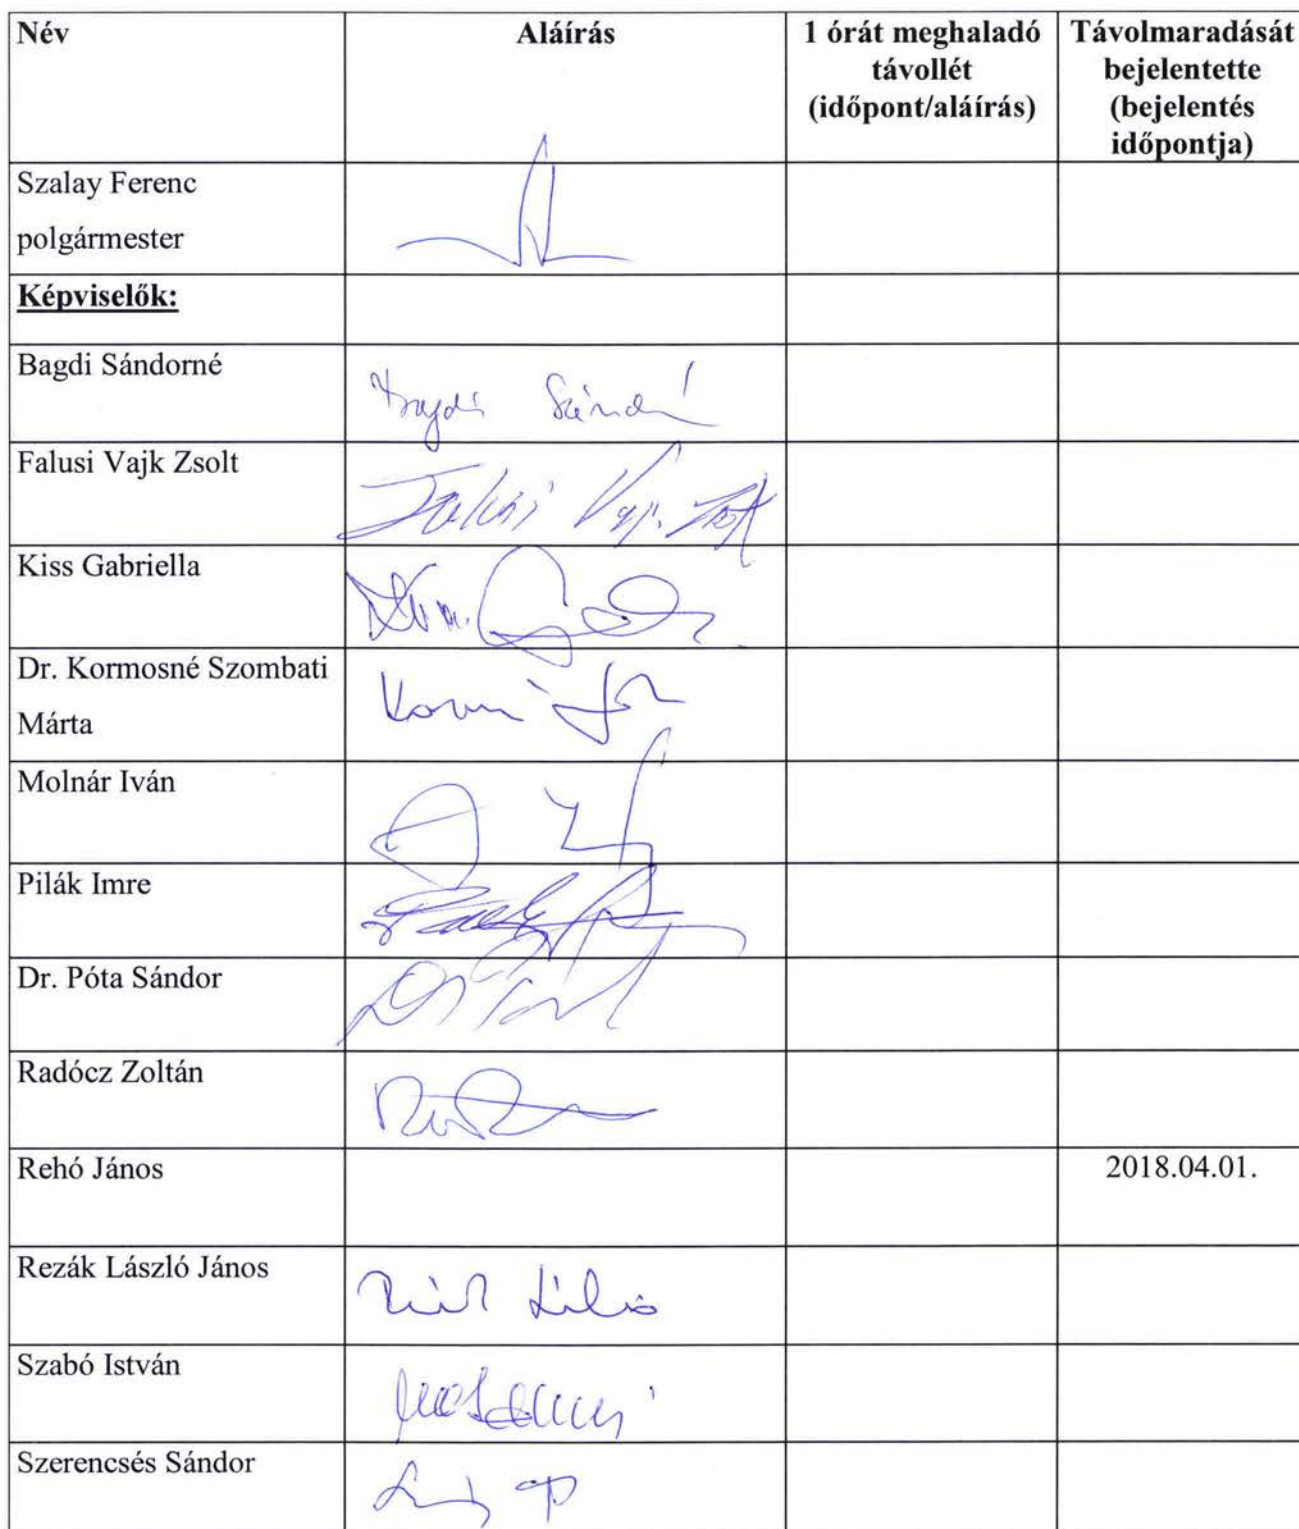 Név
Aláírás
1 órát meghaladó
távollét
(időpont/aláírás)
Távolmaradását
bejelentette
(bejelentés
időpontja)
Szalay Ferenc
polgármester
Képviselők:
Bagdi Sándorné
Falusi Vajk Zsolt
Kiss Gabriella
Dr. Kormosné Szombati
Márta
Molnár Iván
Pilák Imre
Dr. Póta Sándor
Radócz Zoltán
Rehó János
2018.04.01.
Rezák László János
Szabó István
Szerencsés Sándor